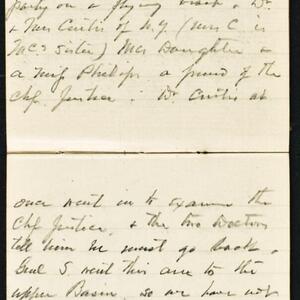 party on a flying visit & Dr.
& Mrs Curtis of N.Y. (Mrs C. is
Jac's sister) McC's Daughter &
a Miss Philips a friend of the
Chf. Justice. Dr. Curtis at
once went in to examine the
Chf Justice, & the two Doctors
tell him he must go back.
Genl S. went this a.m. to the
upper Basin, so we have not